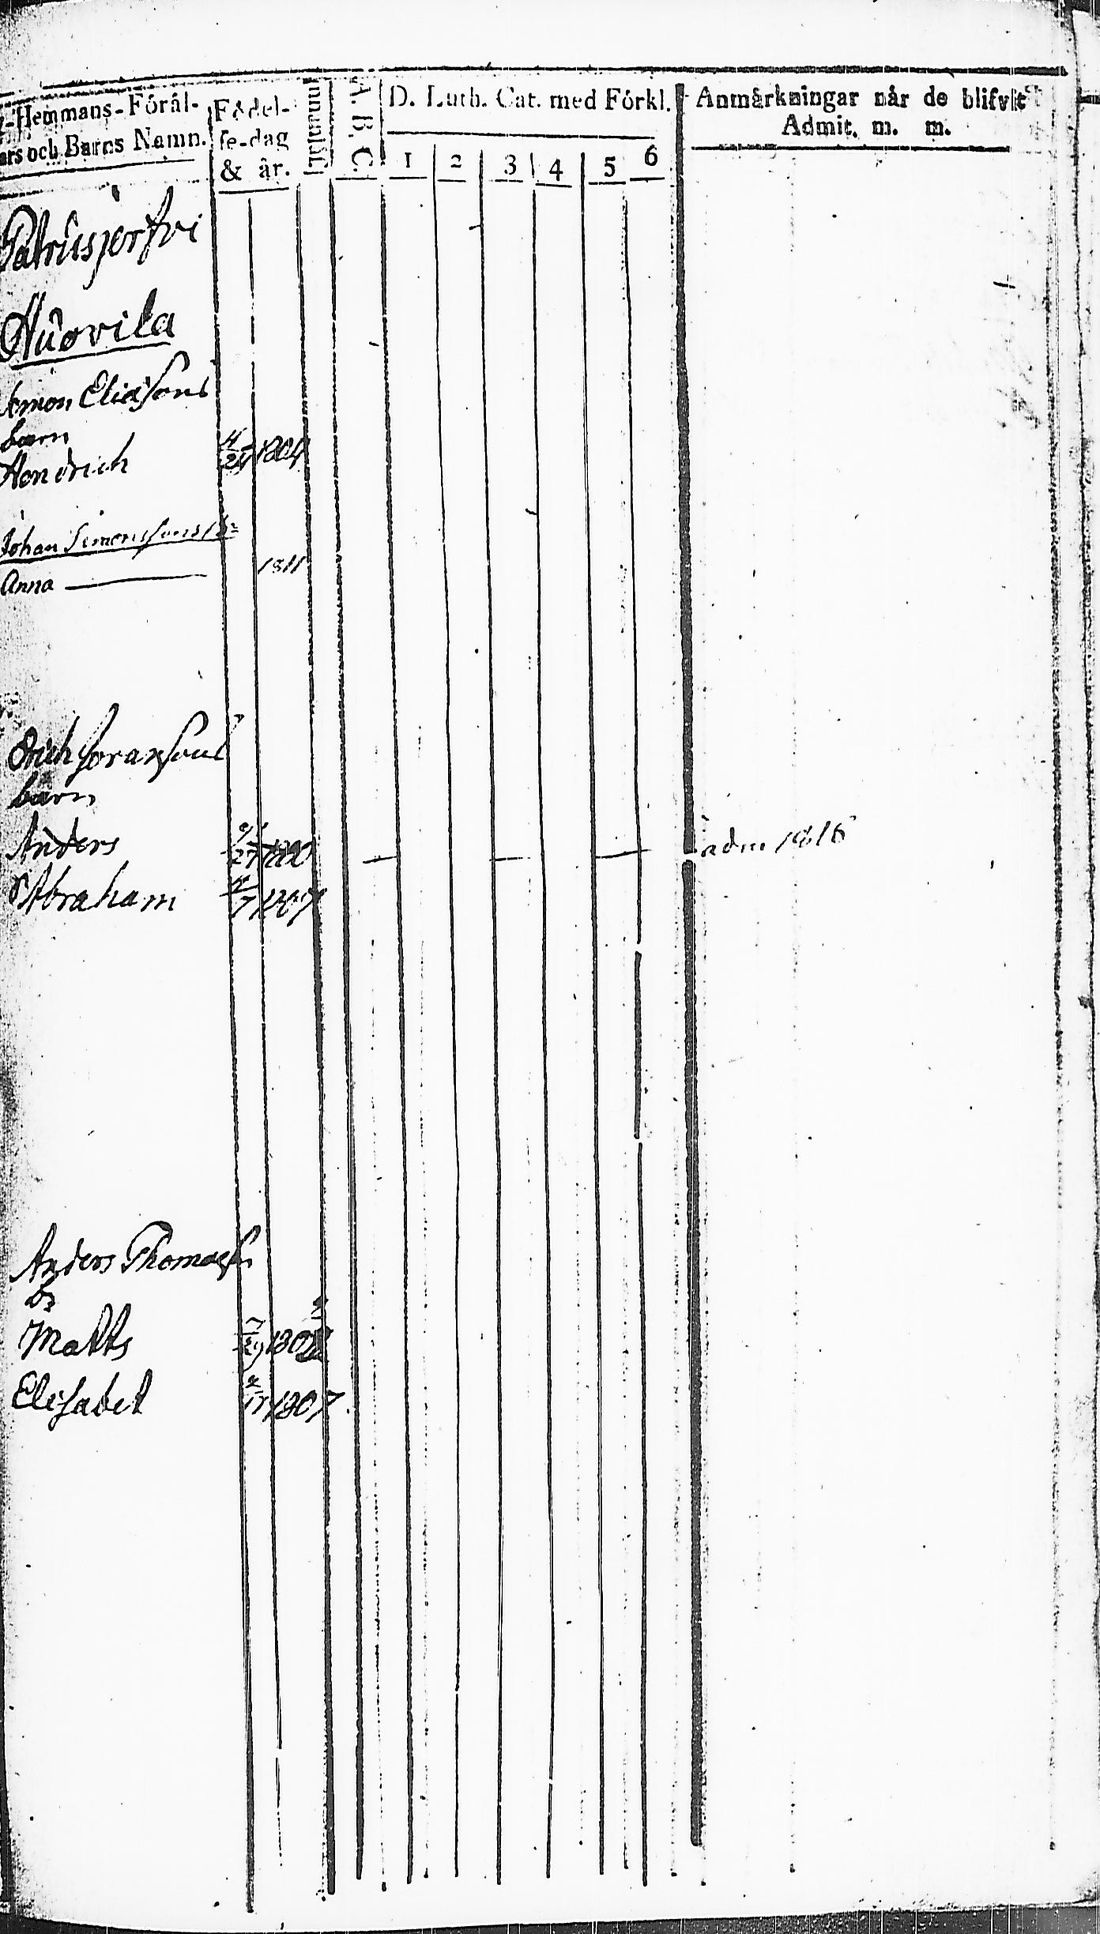 -Hemmans-Förål-
ars och Barns Namn.
Födel-
se-dag
& år.
A. B. C.
D. Luth. Cat. med Förkl.
1 2 3 4 5 6
Anmårkningar når de blifvit
Admit. m. m.
Huovila
Simon Eliæsons
barn
Hendrich 24 1804
Johan Simonssons
Anna 1811
Erich Joranssons
barn
Anders 27 1800 adm 1816
Abraham 7 1807
Anders Thomass
Matts 29
Elisabet 1807